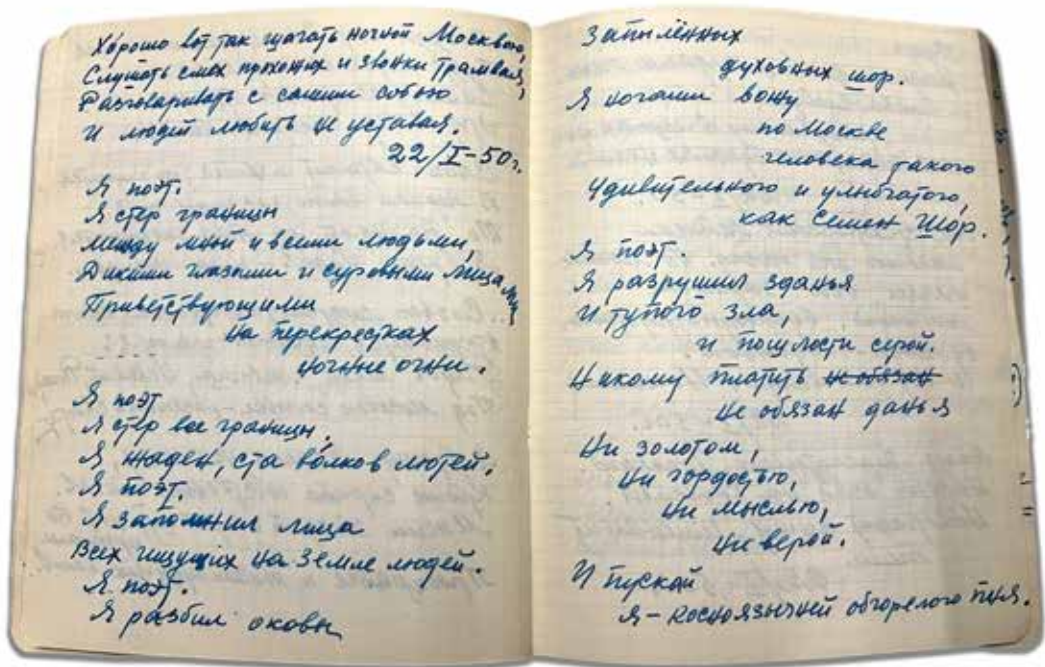 Хорошо вот так шагать ночной Москвою,
Слушать смех прохожих и звонки трамвая,
Разговаривать с самим собою
И людей любить не уставая.
22/I-50 г.
Я поэт.
Я стер границы
между мной и всеми людьми,
Дикими глазами и суровыми лицами
Приветствующими
на перекрестках
ночные огни.
Я поэт
Я стер все границы,
Я жаден, ста волков лютей.
Я поэт.
Я запомнил лица
Всех ищущих на земле людей.
Я поэт.
Я разбил оковы
Запылённых
духовных шор.
Я ногами вожу
по Москве
человека такого
Удивительного и улыбчатого,
как Семен Шор.
Я поэт.
Я разрушил зданья
И тупого зла,
и пошлости серой.
Никому платить не обязан
не обязан данья
Ни золотом,
Ни гордостью,
Ни мыслью,
Ни верой.
И пускай
Я – косноязычней обгорелого пня.